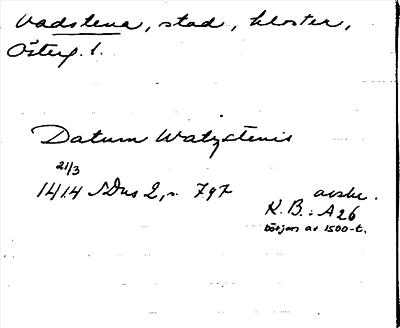 Vadstena, stad, kloster,
Österg. l.
Datum Watzstenis
21/3
1414 SDns 2, s. 797
avskr.
K. B.: A 26
början av 1500-t.